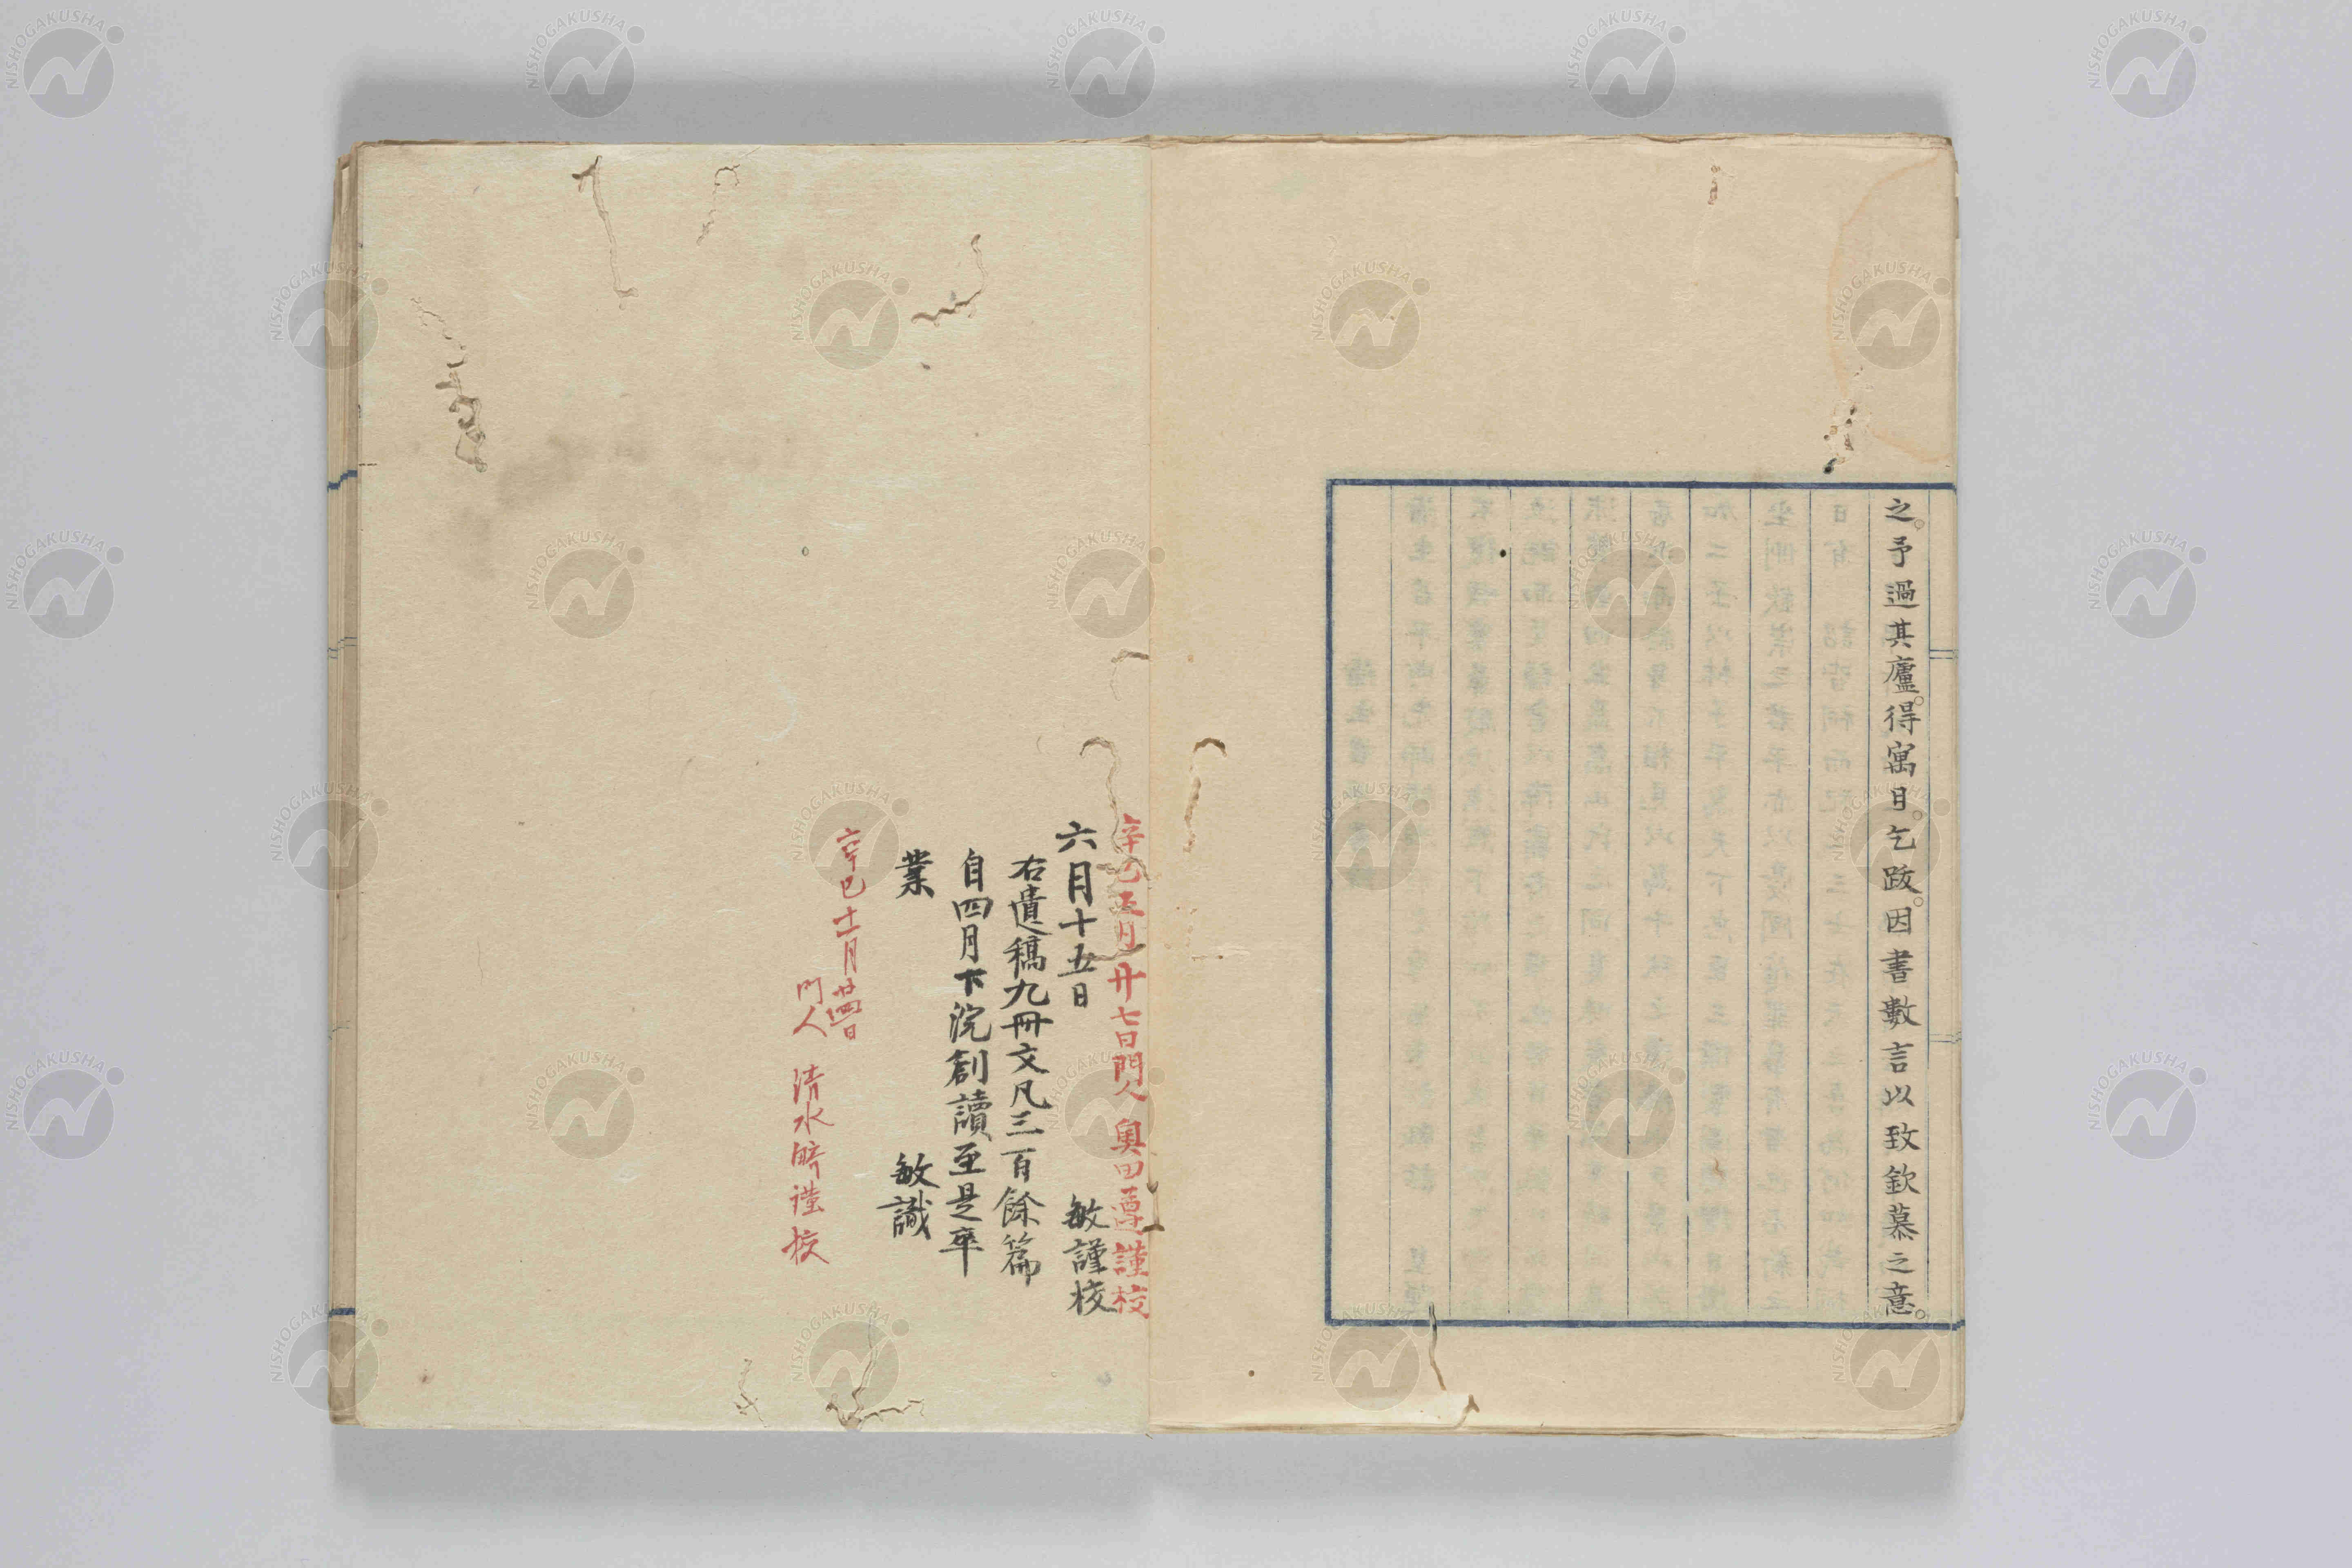 之。予過其廬。得寓目。乞跋。因書數言以致欽慕之意。
辛巳五月廿七日門人 奥田遵謹校
六月十五日 敏謹校
右遺稿九冊文凡三百餘篇
自四月下浣創讀至是卒
業 敏識
辛巳十一月廿四日
門人 清水 謹校
NISHOGAKUSHA